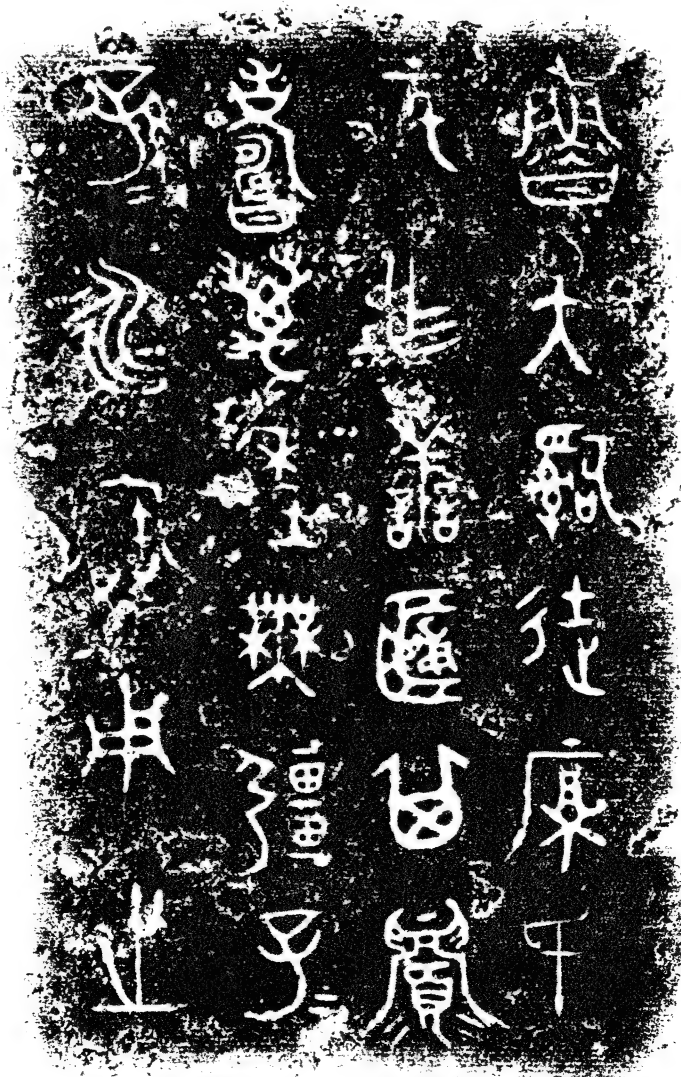 魯大𤔲徒厚氏
元乍善其眉
壽萬年無疆子=
孫=永寶用之